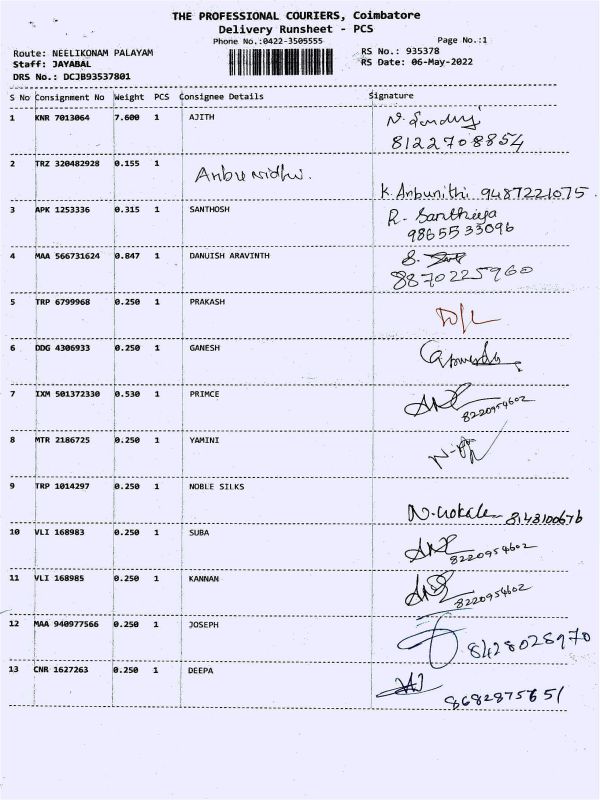 THE PROFESSIONAL COURIERS, Coimbatore
Delivery Runsheet - PCS
Phone No.:0422-3505555 Page No.:1
Route: NEELIKONAM PALAYAM RS No.: 935378
Staff: JAYABAL RS Date: 06-May-2022
DRS No.: DCJB93537801
S No Consignment No Weight PCS Consignee Details Signature
1 KNR 7013064 7.600 1 AJITH
8122708854
2 TRZ 320482928 0.155 1 Anbunidhi.
K. Anbunithi 9487221075.
3 APK 1253336 0.315 1 SANTHOSH R. Santhiya
9865533096
4 MAA 566731624 0.847 1 DANUISH ARAVINTH
8870225960
5 TRP 6799968 0.250 1 PRAKASH D/L
6 DDG 4306933 0.250 1 GANESH
7 IXM 501372330 0.530 1 PRIMCE 8220954602
8 MTR 2186725 0.250 1 YAMINI
9 TRP 1014297 0.250 1 NOBLE SILKS
8148100676
10 VLI 168983 0.250 1 SUBA 8220954602
11 VLI 168985 0.250 1 KANNAN 8220954602
12 MAA 940977566 0.250 1 JOSEPH 8428028970
13 CNR 1627263 0.250 1 DEEPA
8682875651